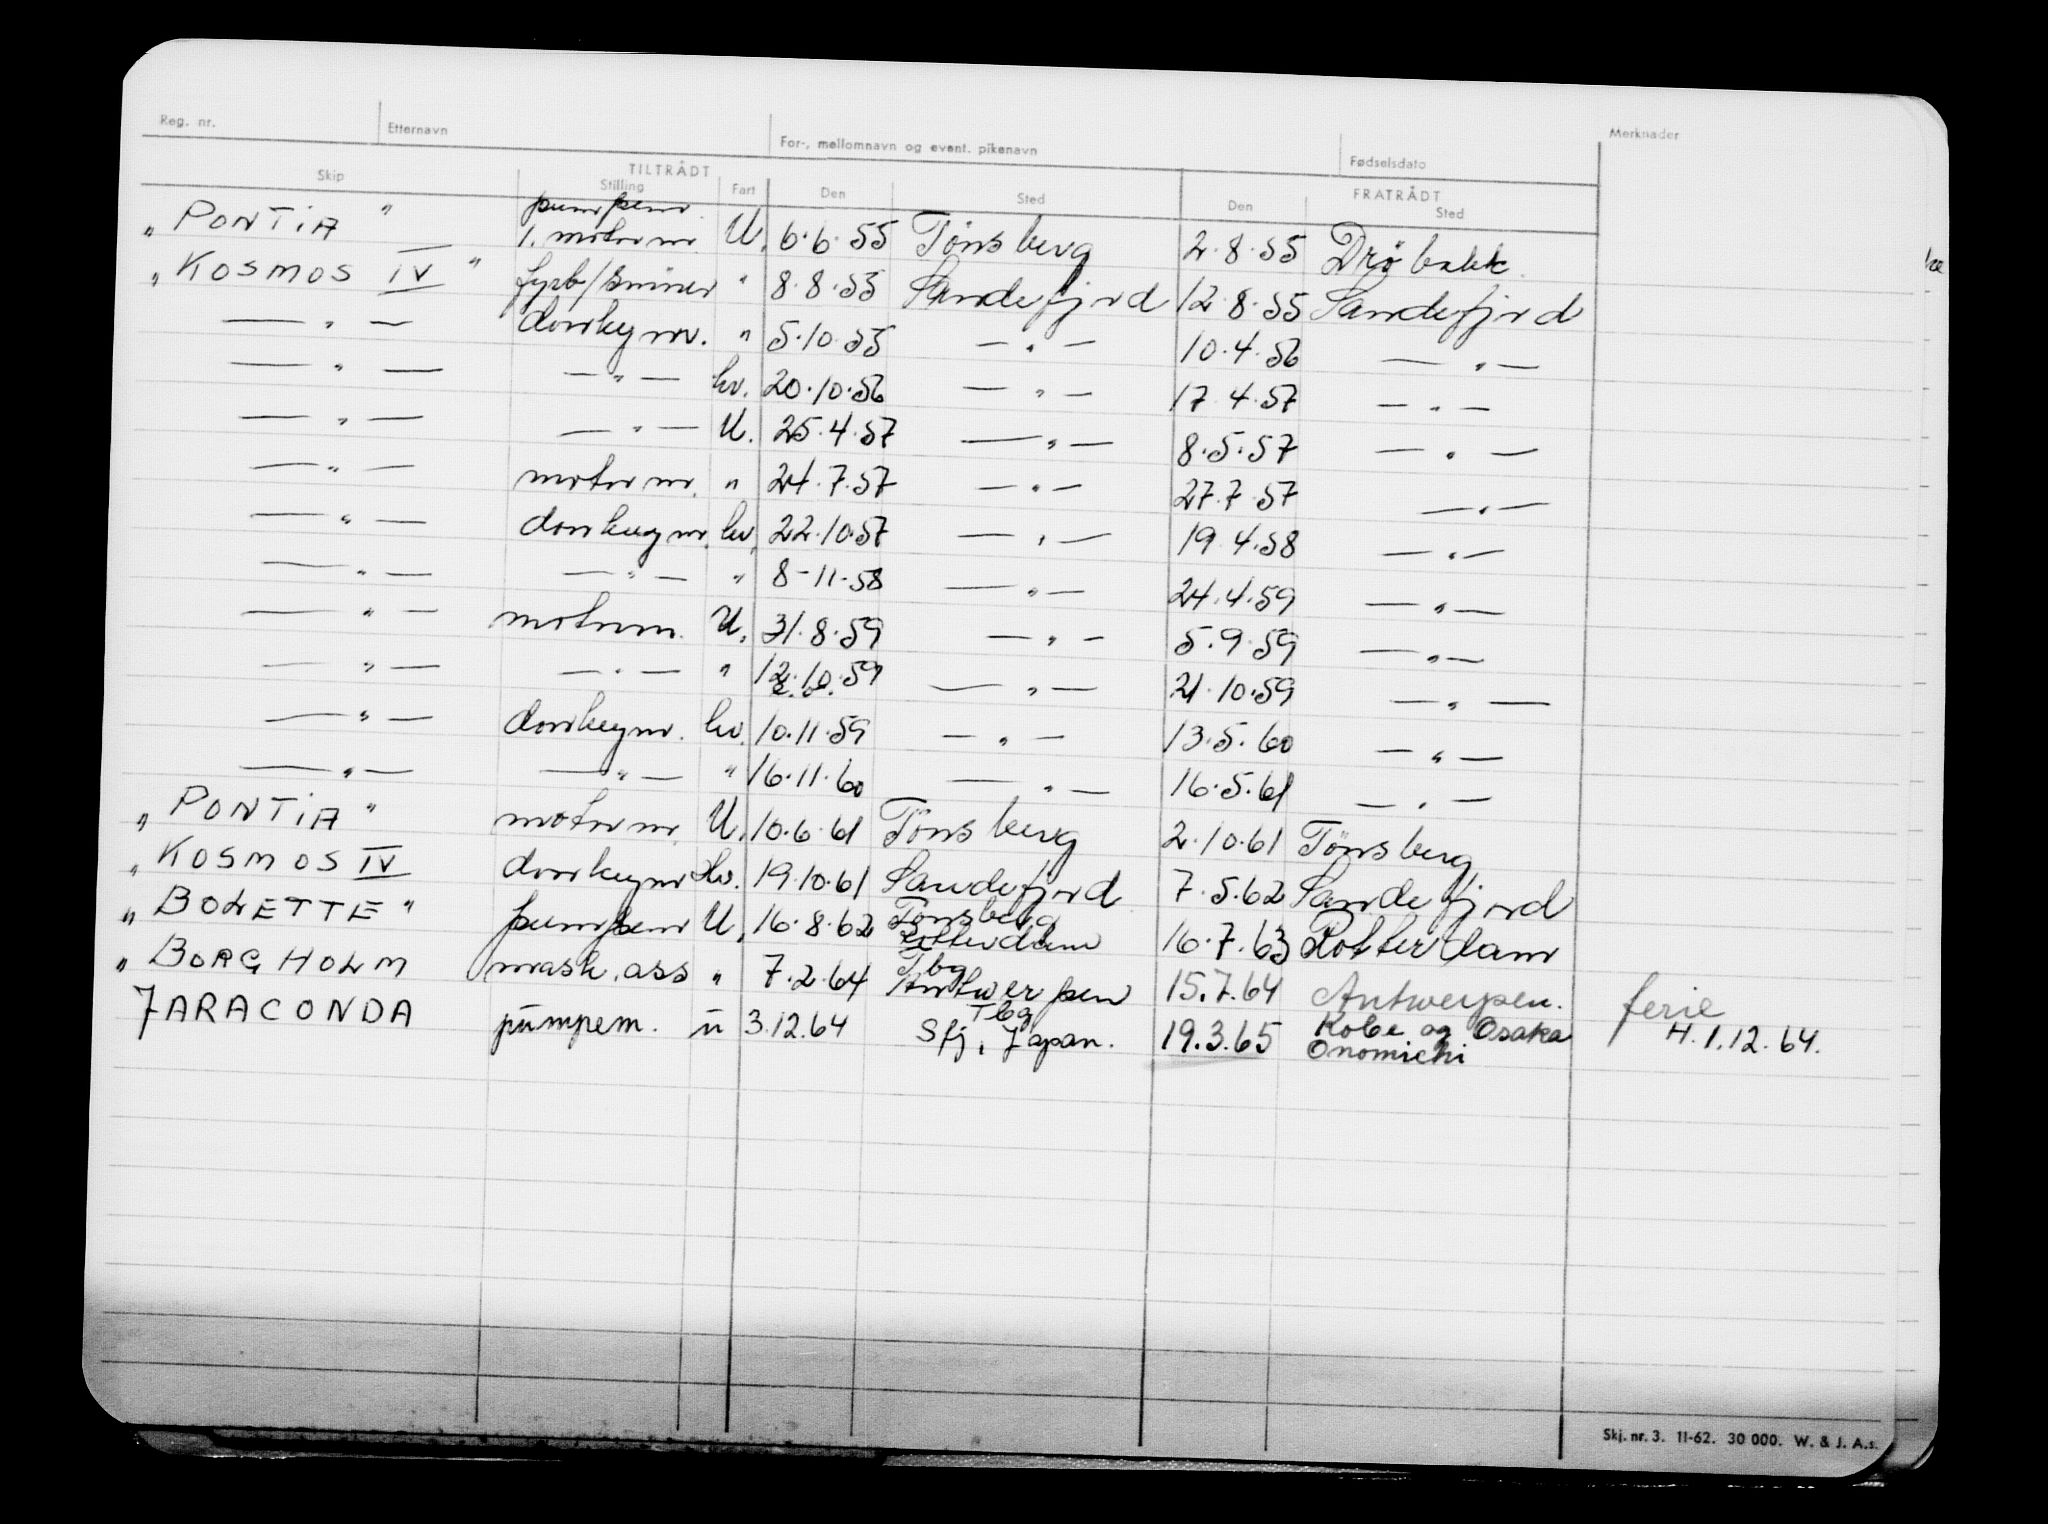 Reg. nr. Etternavn For-, mellomnavn og event. pikenavn Fødselsdato Merknader
TILTRÅDT FRATRÅDT
Skip Stilling Fart Den Sted Den Sted
pumpem.
„ PONTiA " 1. motorm. U. 6.6.55 Tönsberg 2.8.55 Dröbakk.
„ KOSMOS IV " fyrb/smörer " 8.8.55 Sandefjord 12.8.55 Sandefjord
— " — donkeym. " 5.10.55 — " — 10.4.56 — " —
— " — — " — hv. 20.10.56 — " — 17.4.57 — " —
— " — — " — U. 25.4.57 — " — 8.5.57 — " —
— " — motorm. " 24.7.57 — " — 27.7.57 — " —
— " — donkeym. hv. 22.10.57 — " — 19.4.58 — " —
— " — — " — " 8-11-58 — " — 24.4.59 — " —
— " — motorm. U. 31.8.59 — " — 5.9.59 — " —
— " — — " — " 12.10.59 — " — 21.10.59 — " —
— " — donkeym. hv. 10.11.59 — " — 13.5.60 — " —
— " — — " — " 16.11.60 — " — 16.5.61 — " —
„ PONTiA " motorm. U. 10.6.61 Tönsberg 2.10.61 Tönsberg
„ KOSMOS IV donkeym hv. 19.10.61 Sandefjord 7.5.62 Sandefjord
„ BOLETTE " pumpem U. 16.8.62 Tönsberg Rotterdam 16.7.63 Rotterdam
„ BORGHOLM mask. ass " 7.2.64 Tbg Antwerpen 15.7.64 Antwerpen. ferie
JARACONDA pumpem. u 3.12.64 Tbg Sfj, Japan. 19.3.65 Kobe og Osaka H. 1.12.64.
Onomichi
Skj. nr. 3. 11-62. 30 000. W. & J. A.s.